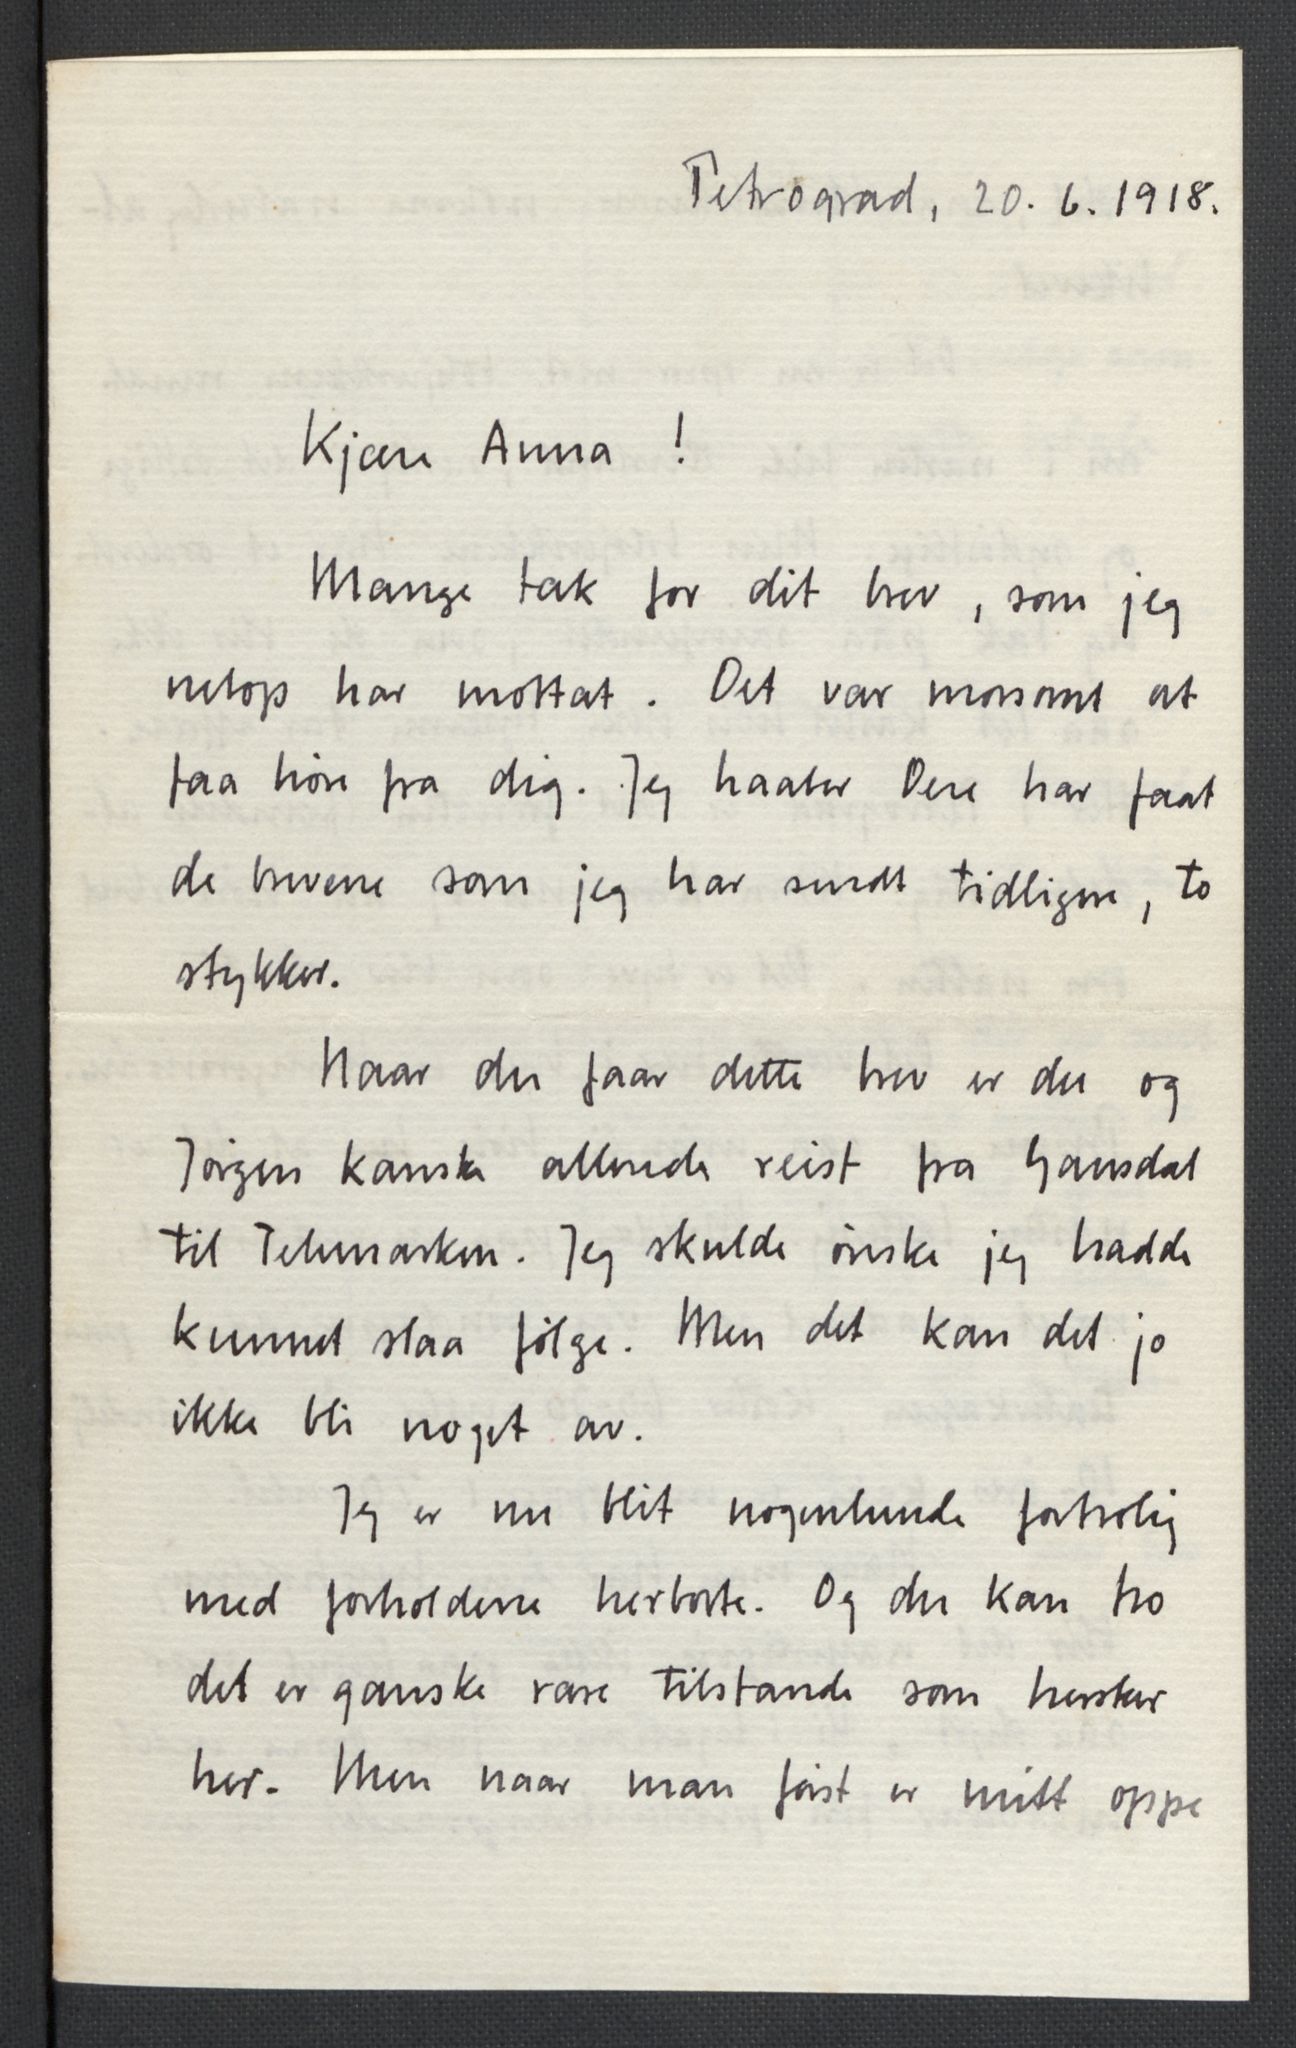 Petrograd, 20. 6. 1918.
Kjære Anna !
Mange tak for dit brev, som jeg
netop har mottat. Det var morsomt at
faa höre fra dig. Jeg haaber Dere har faat
de brevene som jeg har sendt tidligere, to
stykker.
Naar du faar dette brev er du og
Jörgen kanske allerede reist fra Gausdal
til Telemarken. Jeg skulde önske jeg hadde
kunnet slaa fölge. Men det kan det jo
ikke bli noget av.
Jeg er nu blit nogenlunde fortrolig
med forholdene herborte. Og du kan tro
det er ganske rare tilstande som hersker
her. Men naar man först er mitt oppe